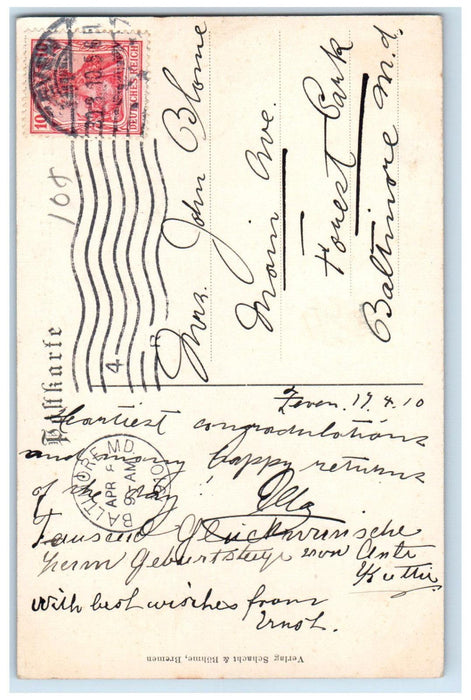 DEUTSCHES REICH
10
108
Postkarte
Mrs. John Blome
Main Ave.
Forest Park
Baltimore M.d.
Zeven. 17.4.10
Heartiest congradulations
and many happy returns
of the day!
BALTIMORE, MD.
APR
9 AM
1910
4
Tausend Glückwünsche
zum Geburtstage von Ante
with best wishes from
Ernst.
Verlag Schacht & Böhme, Bremen